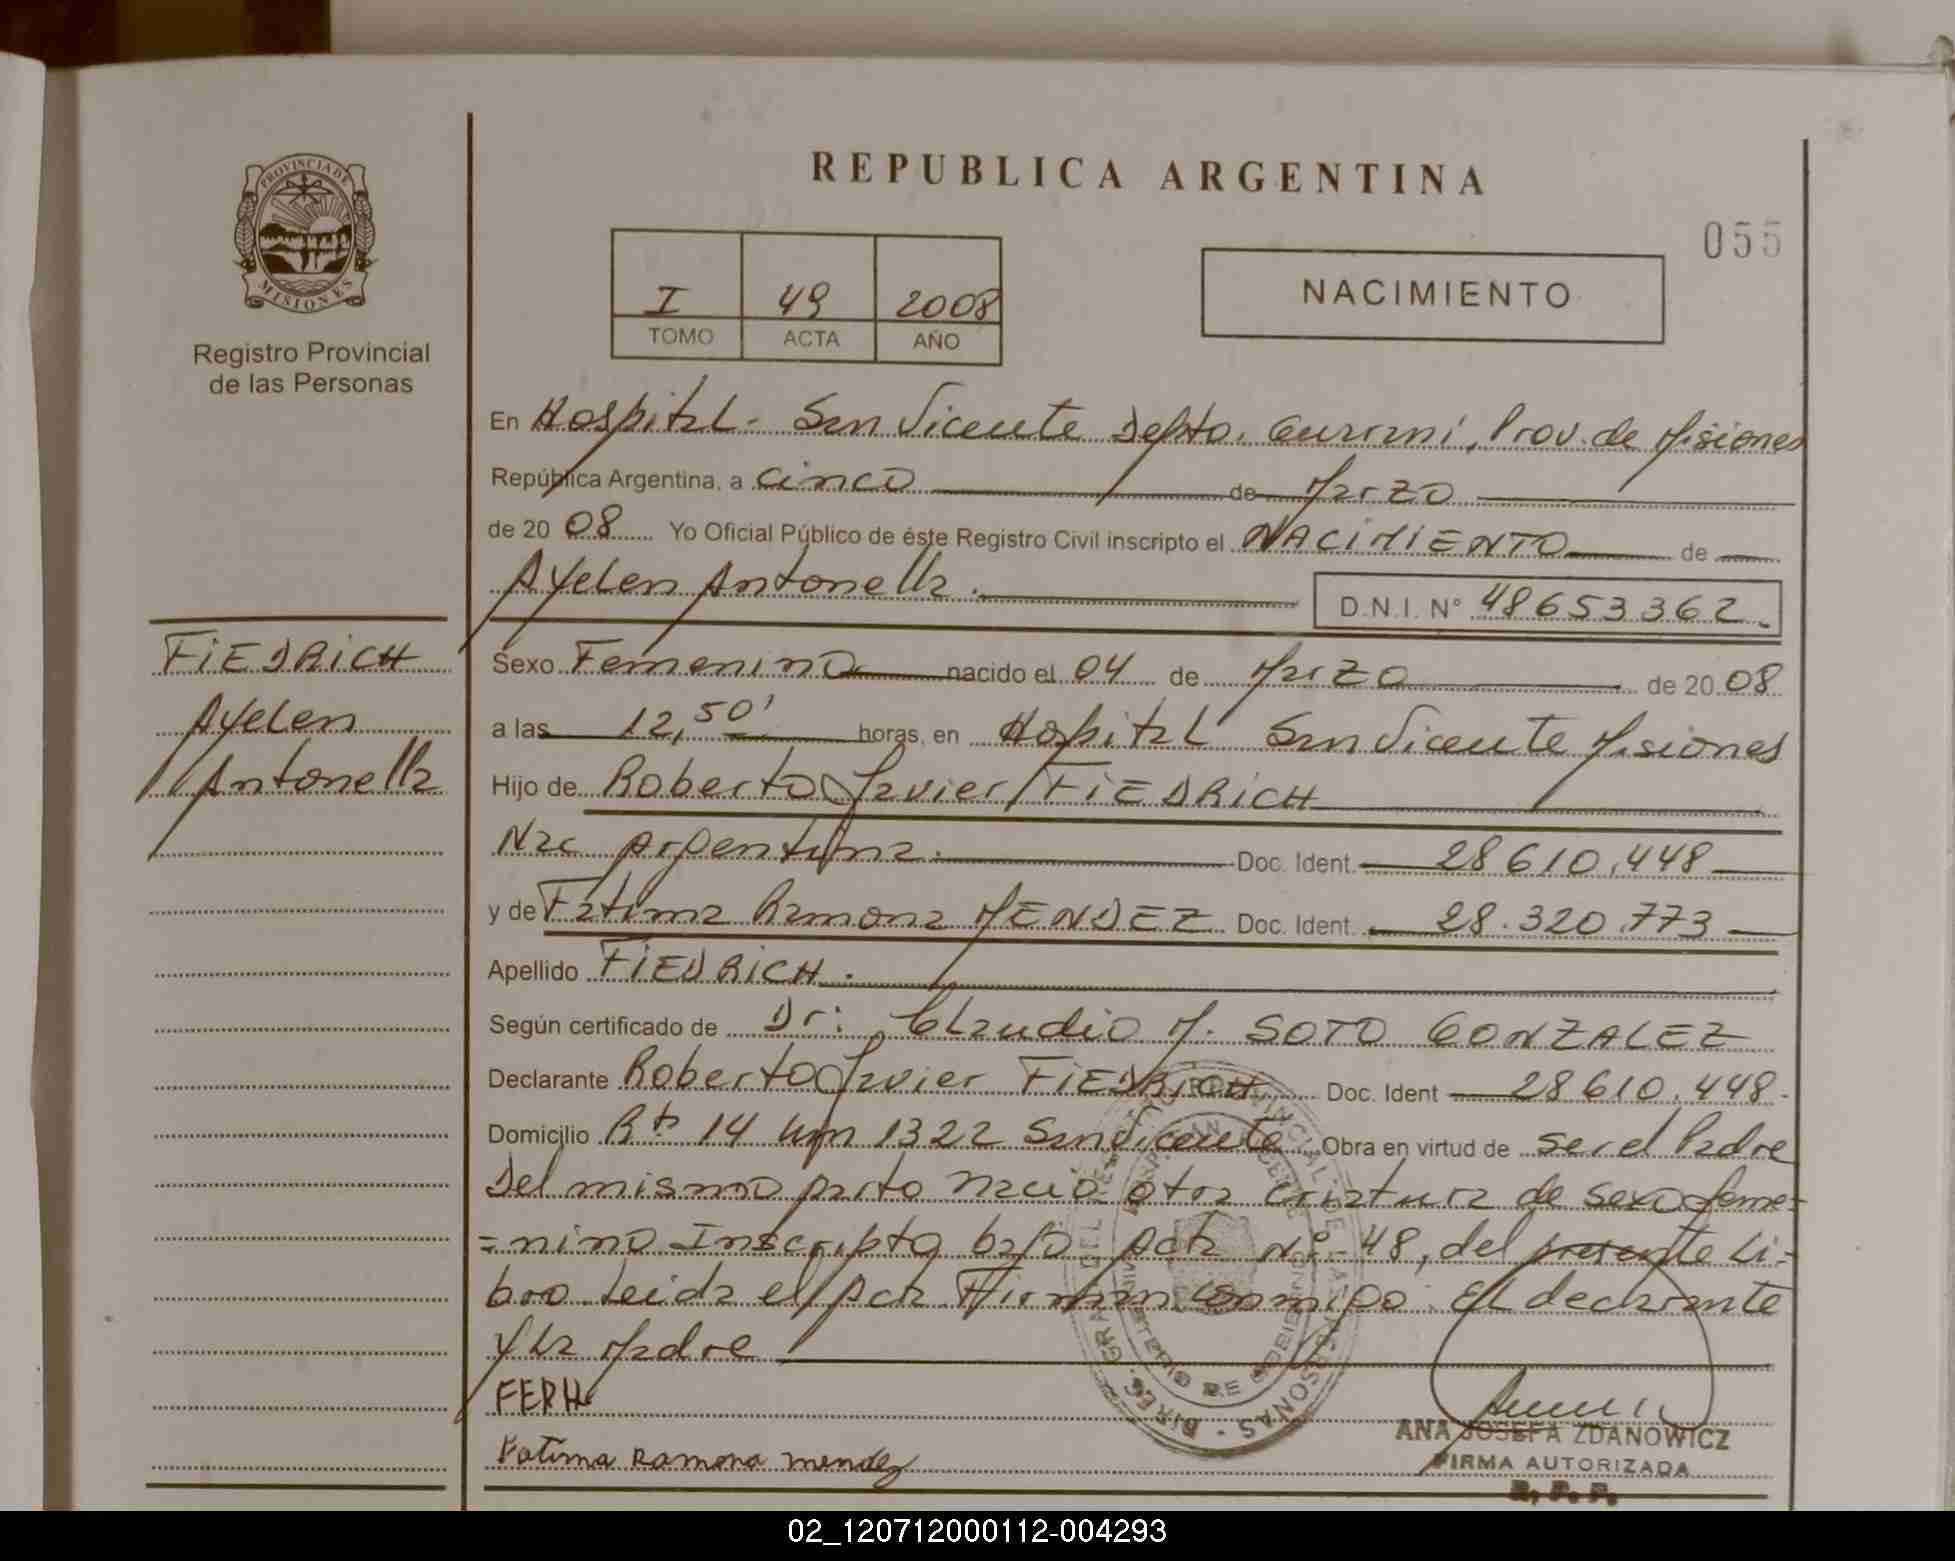 REPUBLICA ARGENTINA
055
PROVINCIA DE MISIONES
Registro Provincial
de las Personas
I 49 2008
TOMO ACTA AÑO
NACIMIENTO
En Hospital - San Vicente Depto. Guarani, Prov. de Misiones
República Argentina, a cinco de Marzo
de 20 08 Yo Oficial Público de éste Registro Civil inscripto el NACIMIENTO de
Ayelen Antonella. D.N.I. N° 48653362.
FIEDRICH
Ayelen
Antonella
Sexo Femenino nacido el 04 de Marzo de 20 08
a las 12,50' horas, en Hospital San Vicente Misiones
Hijo de Roberto Javier FIEDRICH
Nac Argentina. Doc. Ident. 28610.448
y de Fatima Ramona MENDEZ Doc. Ident. 28.320.773
Apellido FIEDRICH.
Según certificado de Dr: Claudio M. SOTO GONZALEZ
Declarante Roberto Javier FIEDRICH Doc. Ident 28610.448-
Domicilio Rta 14 Km 1322 San Vicente Obra en virtud de ser el Padre
Del mismo parto Nació otra criatura de sexo feme=
=nino Inscripta bajo Acta N° 48, del presente Li=
bro Leida el Acta Firman conmigo El declarante
y La Madre
Fatima Ramona mendez
ANA JOSEFA ZDANOWICZ
FIRMA AUTORIZADA
R. P. P.
02_120712000112-004293